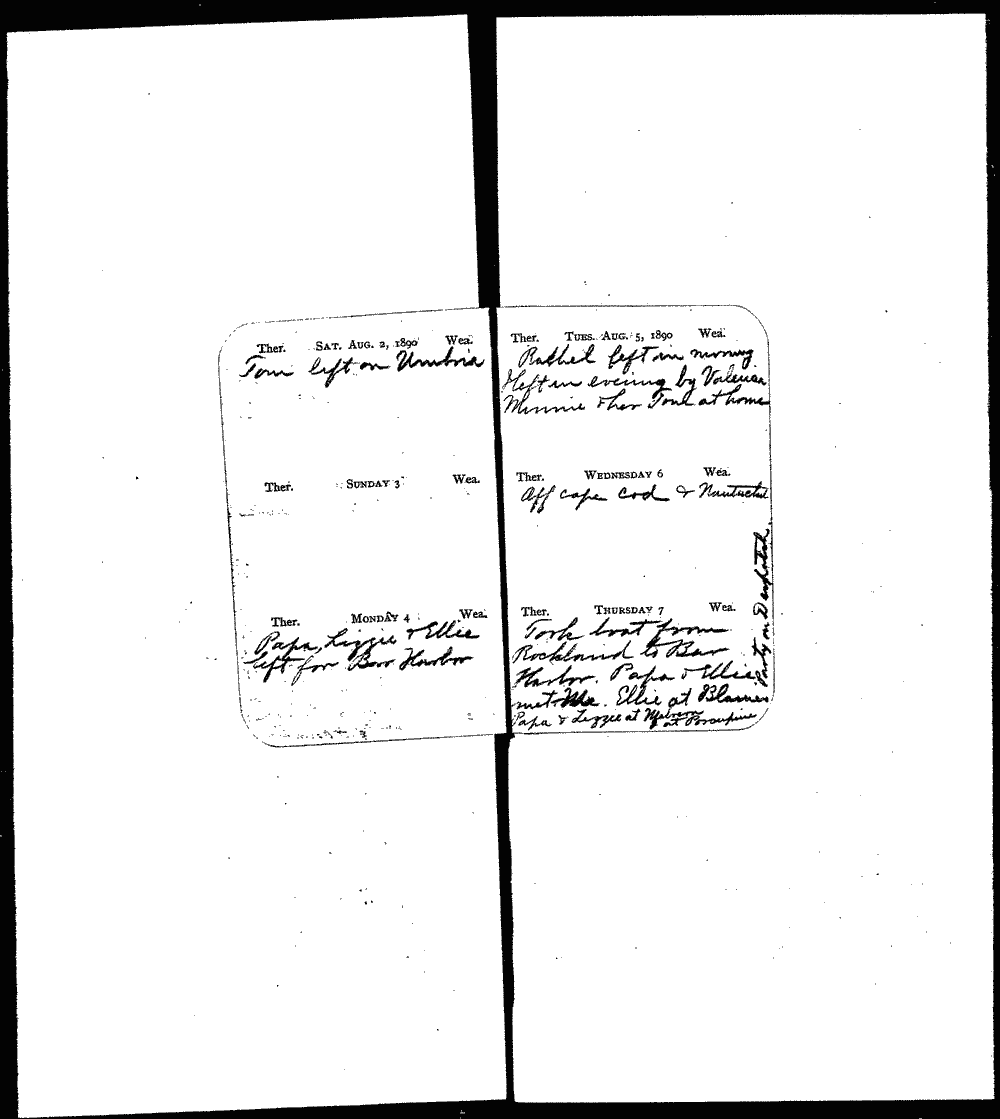 Ther. SAT. AUG. 2, 1890 Wea.
Tom left on Umbria
Ther. SUNDAY 3 Wea.
Ther. MONDAY 4 Wea.
Papa, Lizzie & Ellie
left for Bar Harbor
Ther. TUES. AUG. 5, 1890 Wea.
Rachel left in morning
I left in evening by
Minnie & her at home
Ther. WEDNESDAY 6 Wea.
Off cape Cod & Nantucket
Ther. THURSDAY 7 Wea.
Took boat from
Rockland to Bar
Harbor. Papa & Ellie
met Me. Ellie at
Papa & Lizzie at Malvern
at
Party on Despatch.